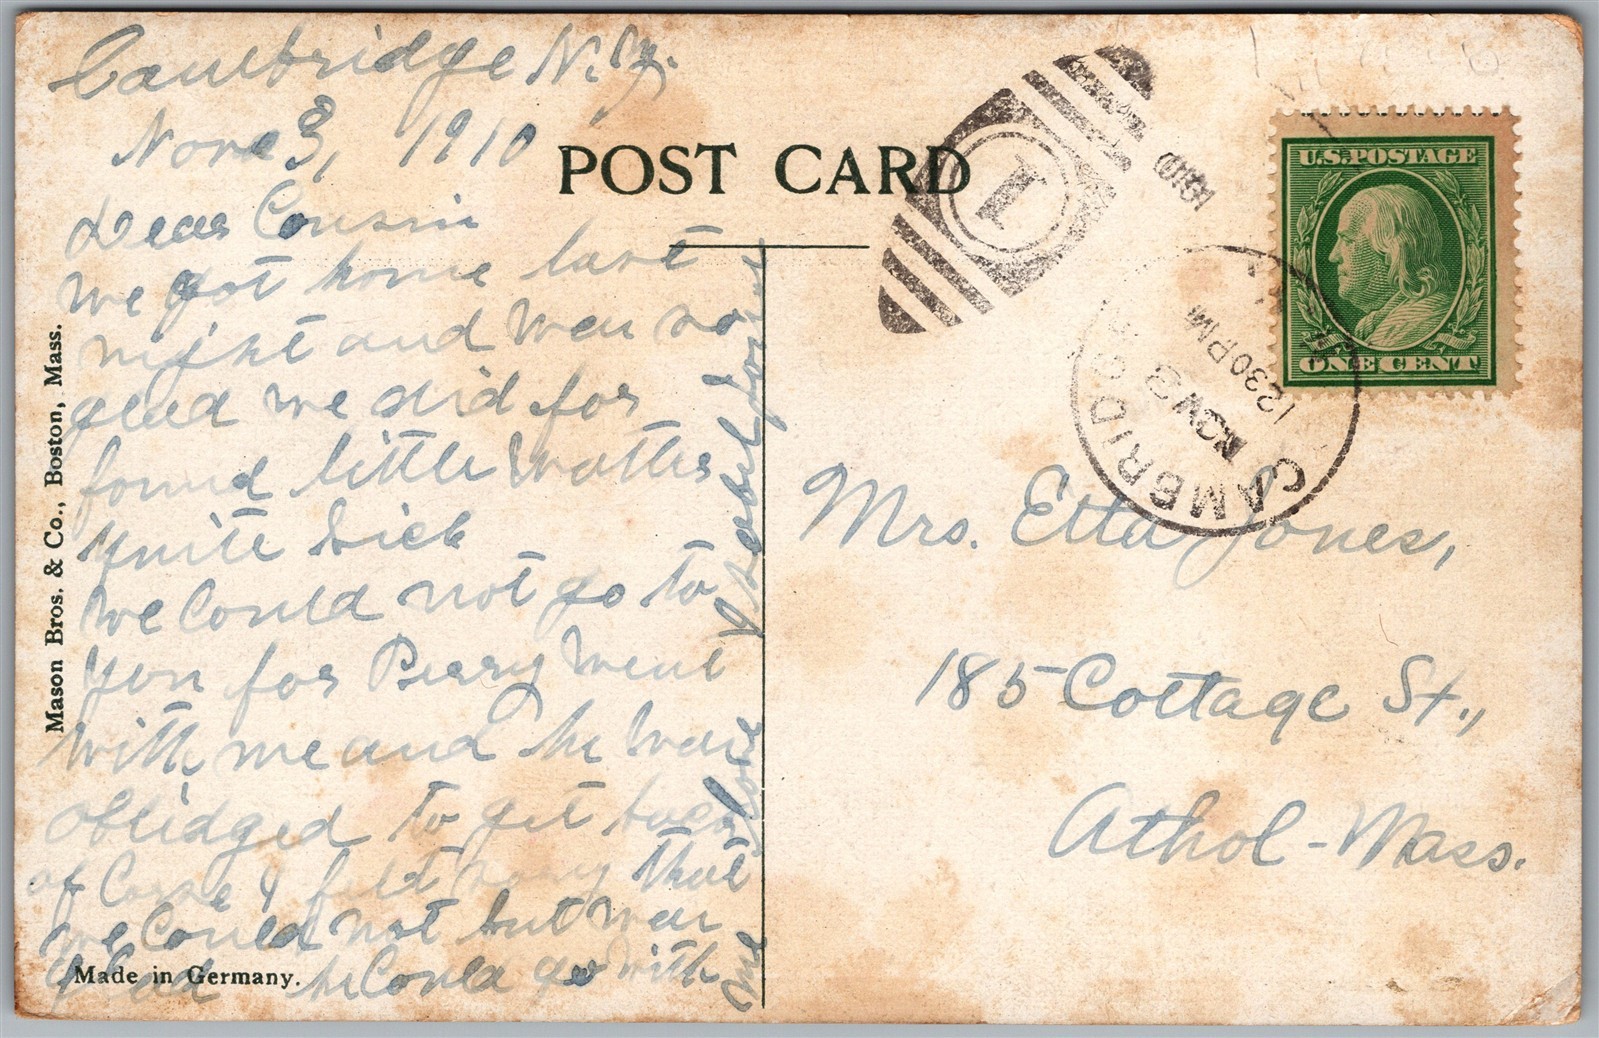 Cambridge N.Y.
Nov 3, 1910
Dear Cousin
we got home last
night and was so
glad we did for
found little Walter
quite sick
we could not go to
you for Perry went
with me and he was
oblidged to get back
of Corse I felt sorry that
we could not but was
glad he could go with
me
love
Isabel Jones
POST CARD
Mason Bros. & Co., Boston, Mass.
Made in Germany.
1
1910
CAMBRIDGE
NOV 3
1230PM
U.S. POSTAGE
ONE CENT
Mrs. Etta Jones,
185 Cottage St.,
Athol - Mass.